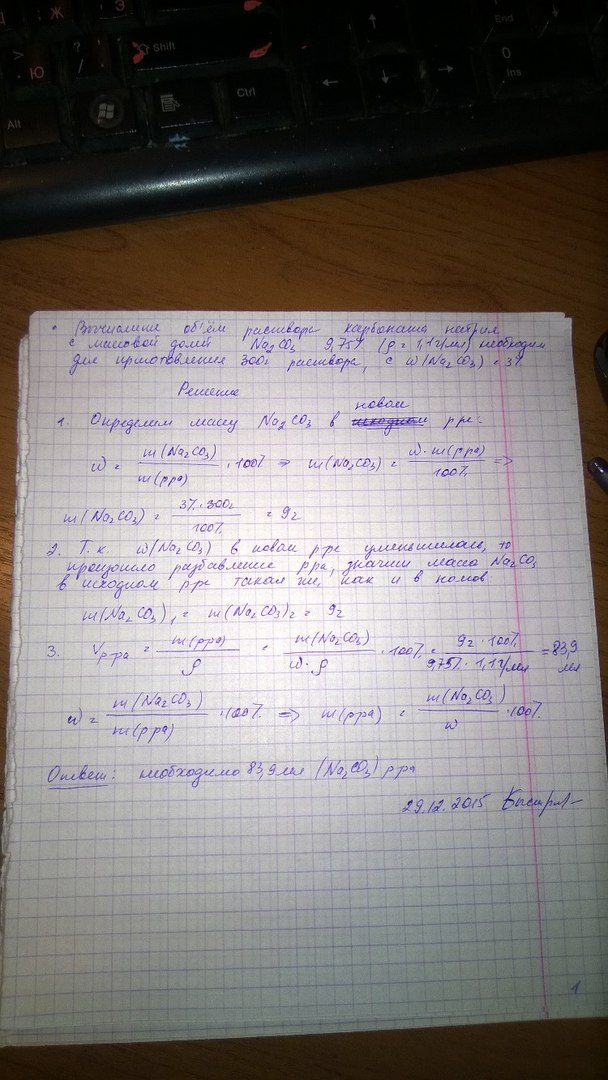 Ж
Э
Shift
End
>
.
Ю
?
/
,
0
Ins
Alt
Ctrl
←
↓
→
↑
• Вычислите объём раствора карбоната натрия
с массовой долей Na₂CO₃ 9,75% (ρ = 1,1 г/мл) необходим
для приготовления 300г раствора, с ω(Na₂CO₃) = 3%
Решение
1. Определим массу Na₂CO₃ в новом р-ре:
ω = m(Na₂CO₃) / m(р-ра) · 100% => m(Na₂CO₃) = ω · m(р-ра) / 100% =>
m(Na₂CO₃) = 3% · 300г / 100% = 9г
2. Т.к. ω(Na₂CO₃) в новом р-ре уменьшилась, то
произошло разбавление р-ра, значит масса Na₂CO₃
в исходном р-ре такая же, как и в новом:
m(Na₂CO₃)₁ = m(Na₂CO₃)₂ = 9г
3. Vр-ра = m(р-ра) / ρ = m(Na₂CO₃) / ω · ρ · 100% = 9г · 100% / 9,75% · 1,1 г/мл = 83,9 мл
ω = m(Na₂CO₃) / m(р-ра) · 100% => m(р-ра) = m(Na₂CO₃) / ω · 100%
Ответ: необходимо 83,9 мл (Na₂CO₃) р-ра
29.12.2015
1